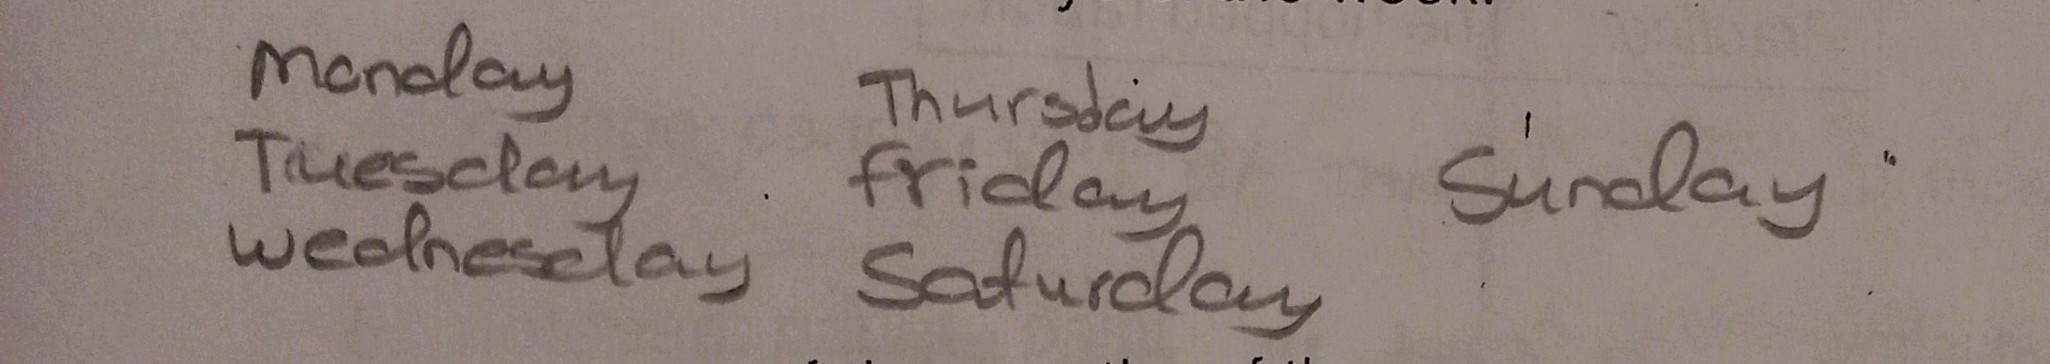 Monday
Tuesday
Wednesday
Thursday
friday
Saturday
Sunday